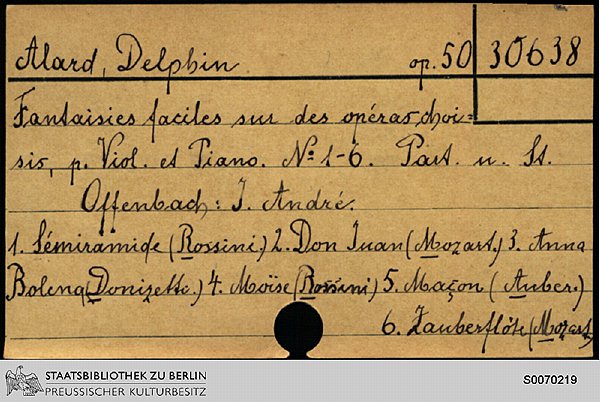 Alard, Delphin op. 50 30638
Fantaisies faciles sur des opéras choi-
sis, p. Viol. et Piano. No 1-6. Part. u. St.
Offenbach: J. André.
1. Sémiramide (Rossini.) 2. Don Juan (Mozart.) 3. Anna
Bolena (Donizetti.) 4. Moïse (Rossini) 5. Maçon (Auber.)
6. Zauberflöte (Mozart)
STAATSBIBLIOTHEK ZU BERLIN
PREUSSISCHER KULTURBESITZ
S0070219